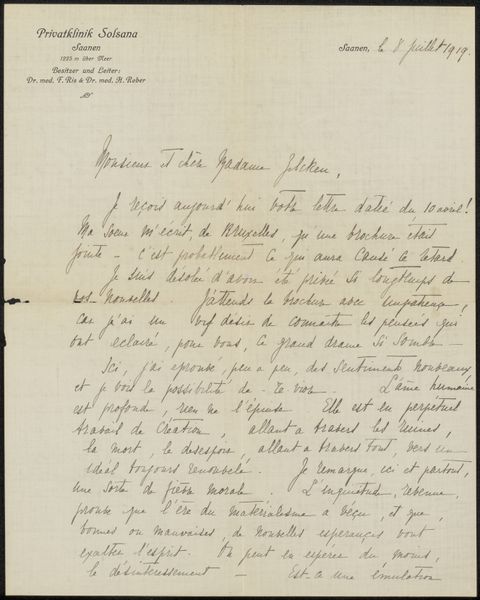 Privatklinik Solsana
Saanen
1225 m über Meer
Besitzer und Leiter:
Dr. med. F. Ris & Dr. med. H. Rober
Saanen, le 8 juillet 1919.
Monsieur et chère Madame Zilcken,
Je reçois aujourd'hui votre lettre datée du 10 avril!
Ma soeur m'écrit, de Bruxelles, qu'une brochure était
jointe - c'est probablement ce qui aura causé le retard.
Je suis désolée d'avoir été privée si longtemps de
vos nouvelles. J'attends la brochure avec impatience,
car j'ai un vif désir de connaître les pensées qui
ont éclairé, pour vous, ce grand drame si sombre -
Ici, j'ai éprouvé, peu à peu, des sentiments nouveaux,
et je vois la possibilité de - re-vivre. L'âme humaine
est profonde, rien ne l'épuise. Elle est en perpétuel
travail de création, allant à travers les ruines,
la mort, le désespoir, allant à travers tout, vers un
idéal toujours renouvelé. Je remarque, ici et partout,
une sorte de fièvre morale. L'inquiétude, revenue,
prouve que l'ère du matérialisme a vécu, et que,
bonnes ou mauvaises, de nouvelles espérances vont
exalter l'esprit. On peut en espérer du moins,
le désintéressement - Est-ce une émulation